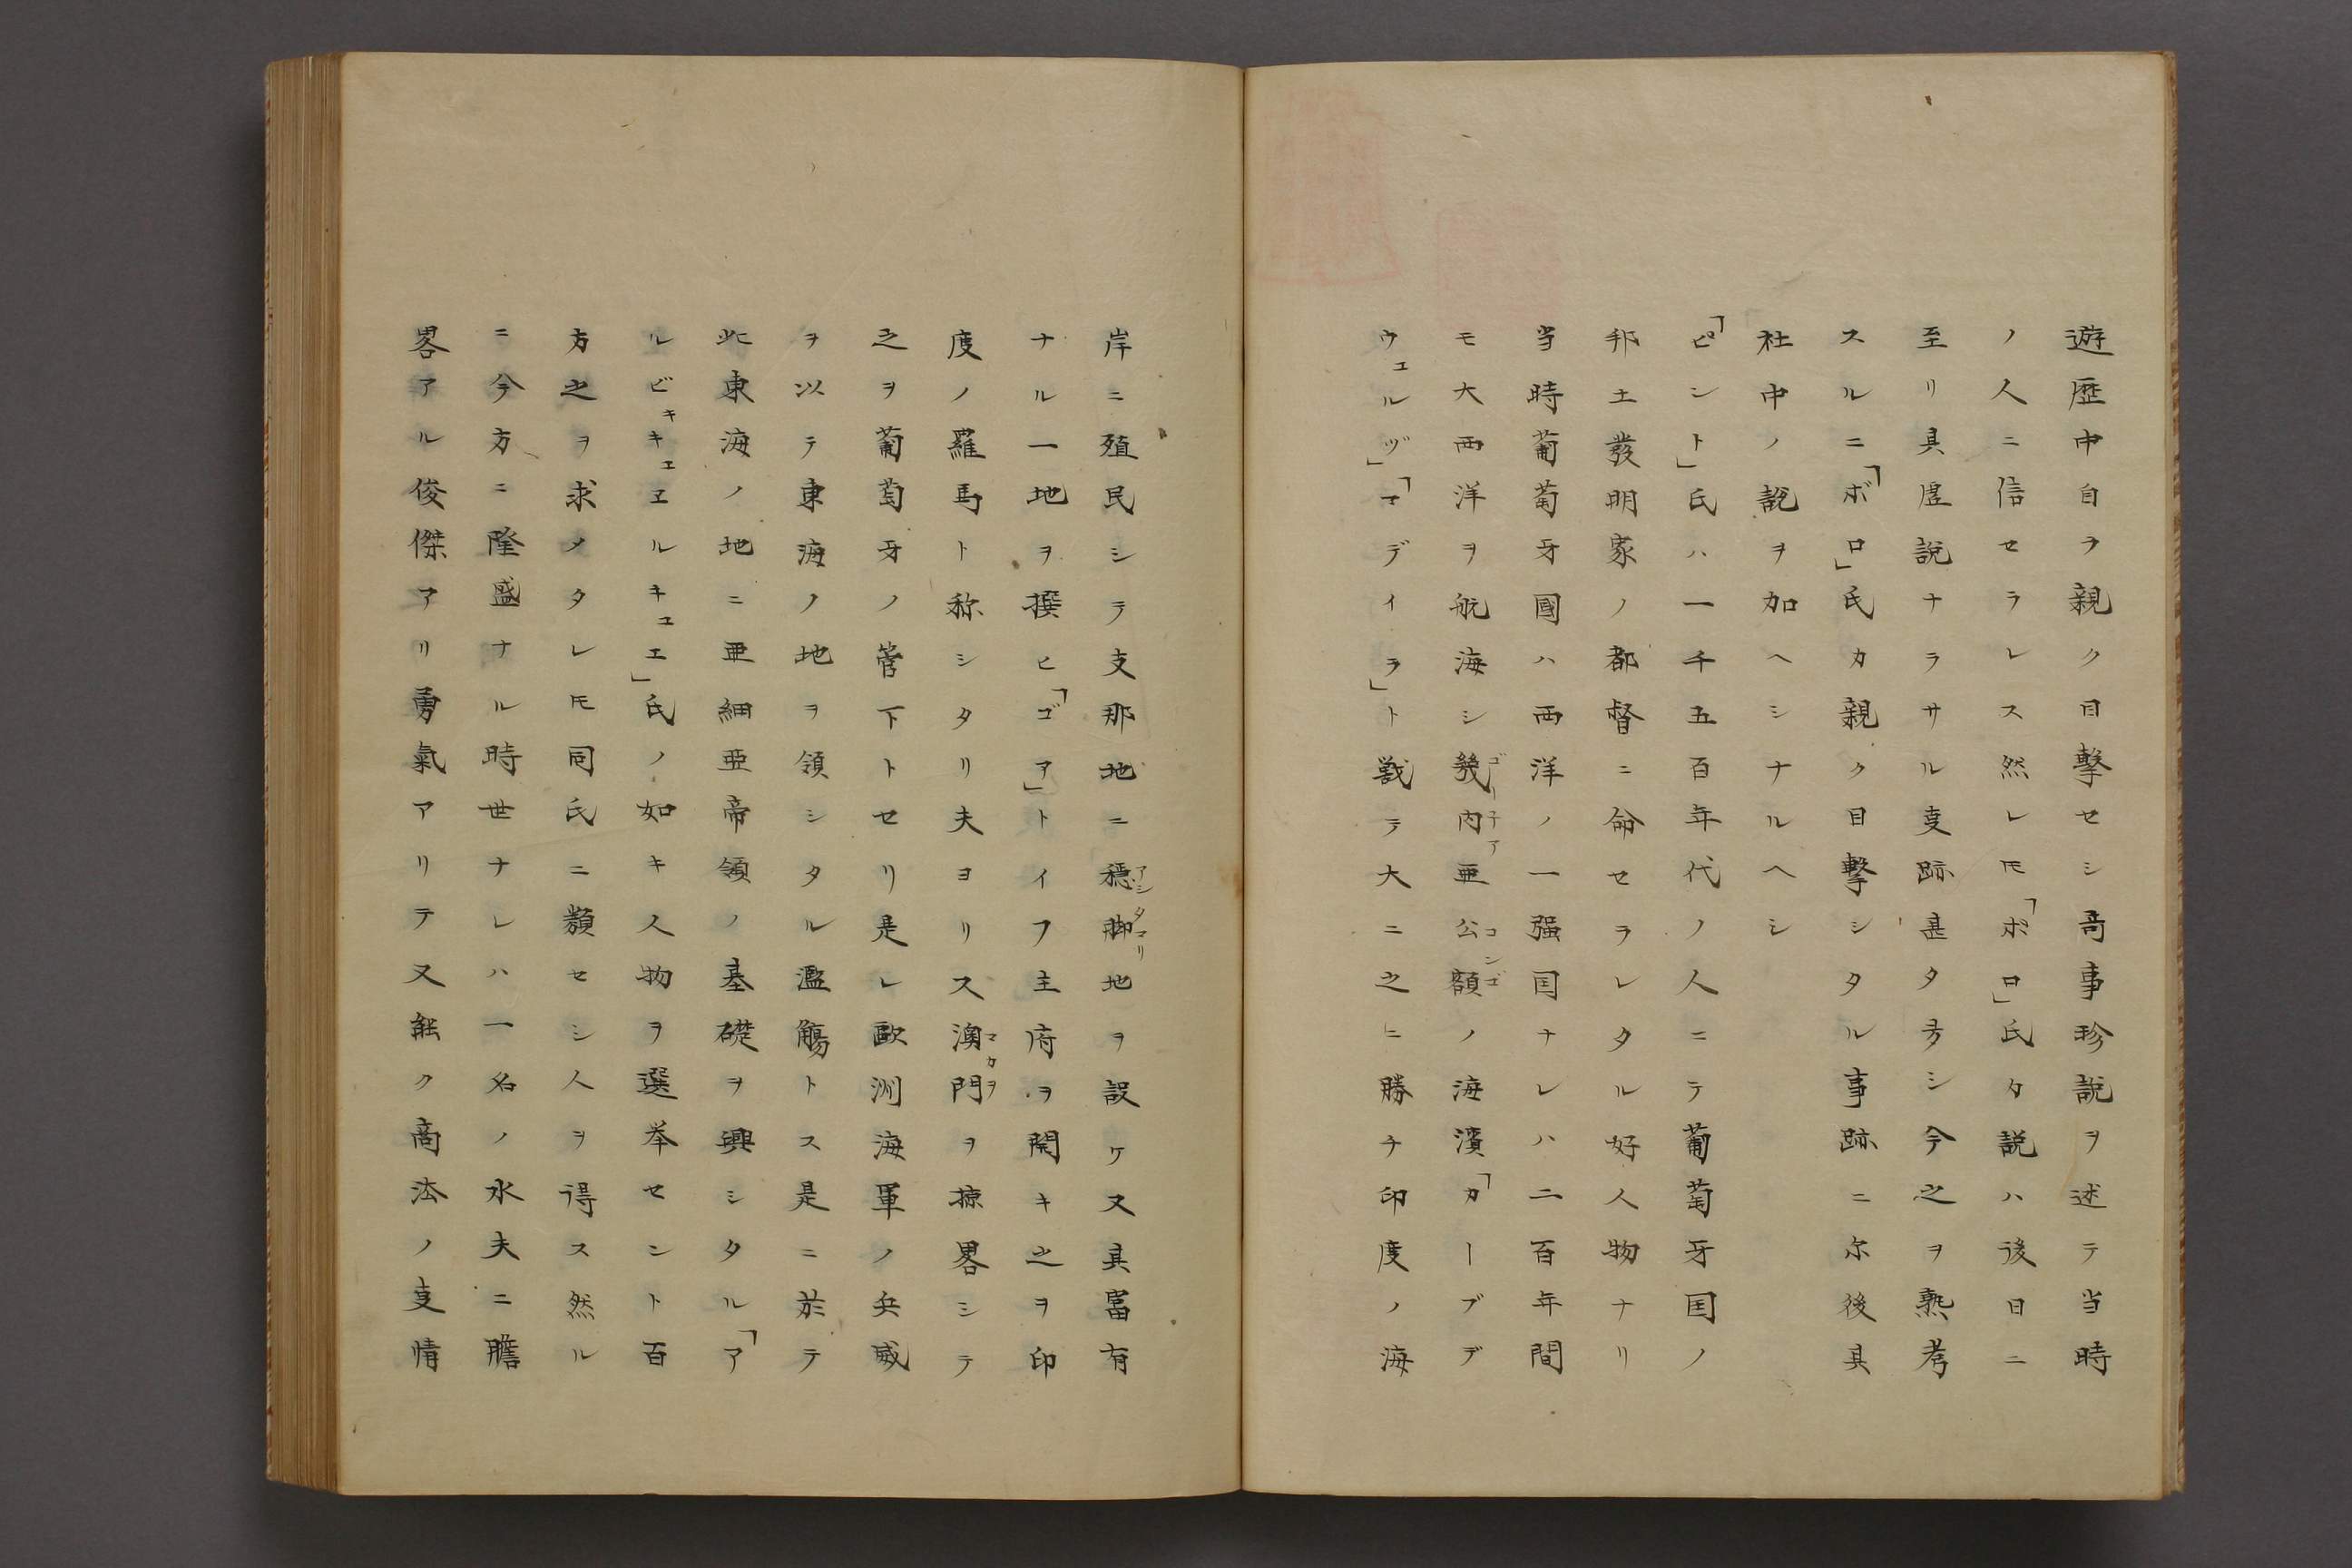 遊歴中自ラ親ク目擊セシ奇事珍説ヲ述テ当時
ノ人ニ信セラレス然レ𪜈「ボロ」氏タ説ハ後日ニ
至リ具虚説ナラサル㕝跡甚タ夛シ今之ヲ熟考
スルニ「ボロ」氏カ親ク目擊シタル事跡ニ尓後具
社中ノ説ヲ加ヘシナルヘシ
「ピント」氏ハ一千五百年代ノ人ニテ葡萄牙国ノ
邦土發明家ノ都督ニ命セラレタル好人物ナリ
当時葡萄牙國ハ西洋ノ一强国ナレハ二百年間
モ大西洋ヲ航海シ幾内亜公額ノ海濱「カーブデ
ウェルヅ」「マデイラ」ト戦テ大ニ之ニ勝チ印度ノ海
岸ニ殖民シテ支那地ニ穏脚地ヲ設ケ又其富有
ナル一地ヲ撰ヒ「ゴア」トイフ主府ヲ開キ之ヲ印
度ノ羅馬ト称シタリ夫ヨリス澳門ヲ掠畧シテ
之ヲ葡萄牙ノ菅下トセリ是レ歐洲海軍ノ兵威
ヲ以テ東海ノ地ヲ領シタル濫觴トス是ニ於テ
此東海ノ地ニ亜細亞帝領ノ基礎ヲ興シタル「ア
ルビキキエヱルキユエ」氏ノ如キ人物ヲ選挙セント百
方之ヲ求メタレ𪜈同氏ニ類セシ人ヲ得ス然ル
ニ今方ニ隆盛ナル時世ナレハ一名ノ水夫ニ膽
畧アル俊傑アリ勇氣アリテ又能ク商法ノ㕝情